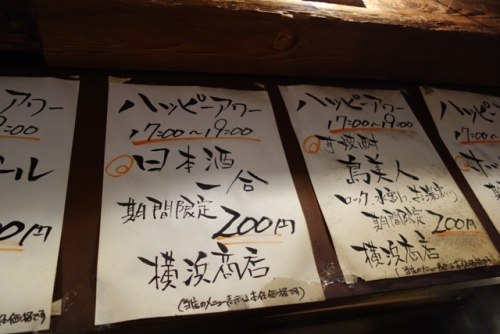 アワー
9:00
ール
00円
ハッピーアワー
17:00〜19:00
日本酒
一合
期間限定 200円
横浜商店
(当店のメニュー表示は本体価格です)
ハッピーアワー
17:00〜19:00
芋焼酎
島美人
ロック、水割り、お湯割り
期間限定 200円
横浜商店
ハッピー
17:00